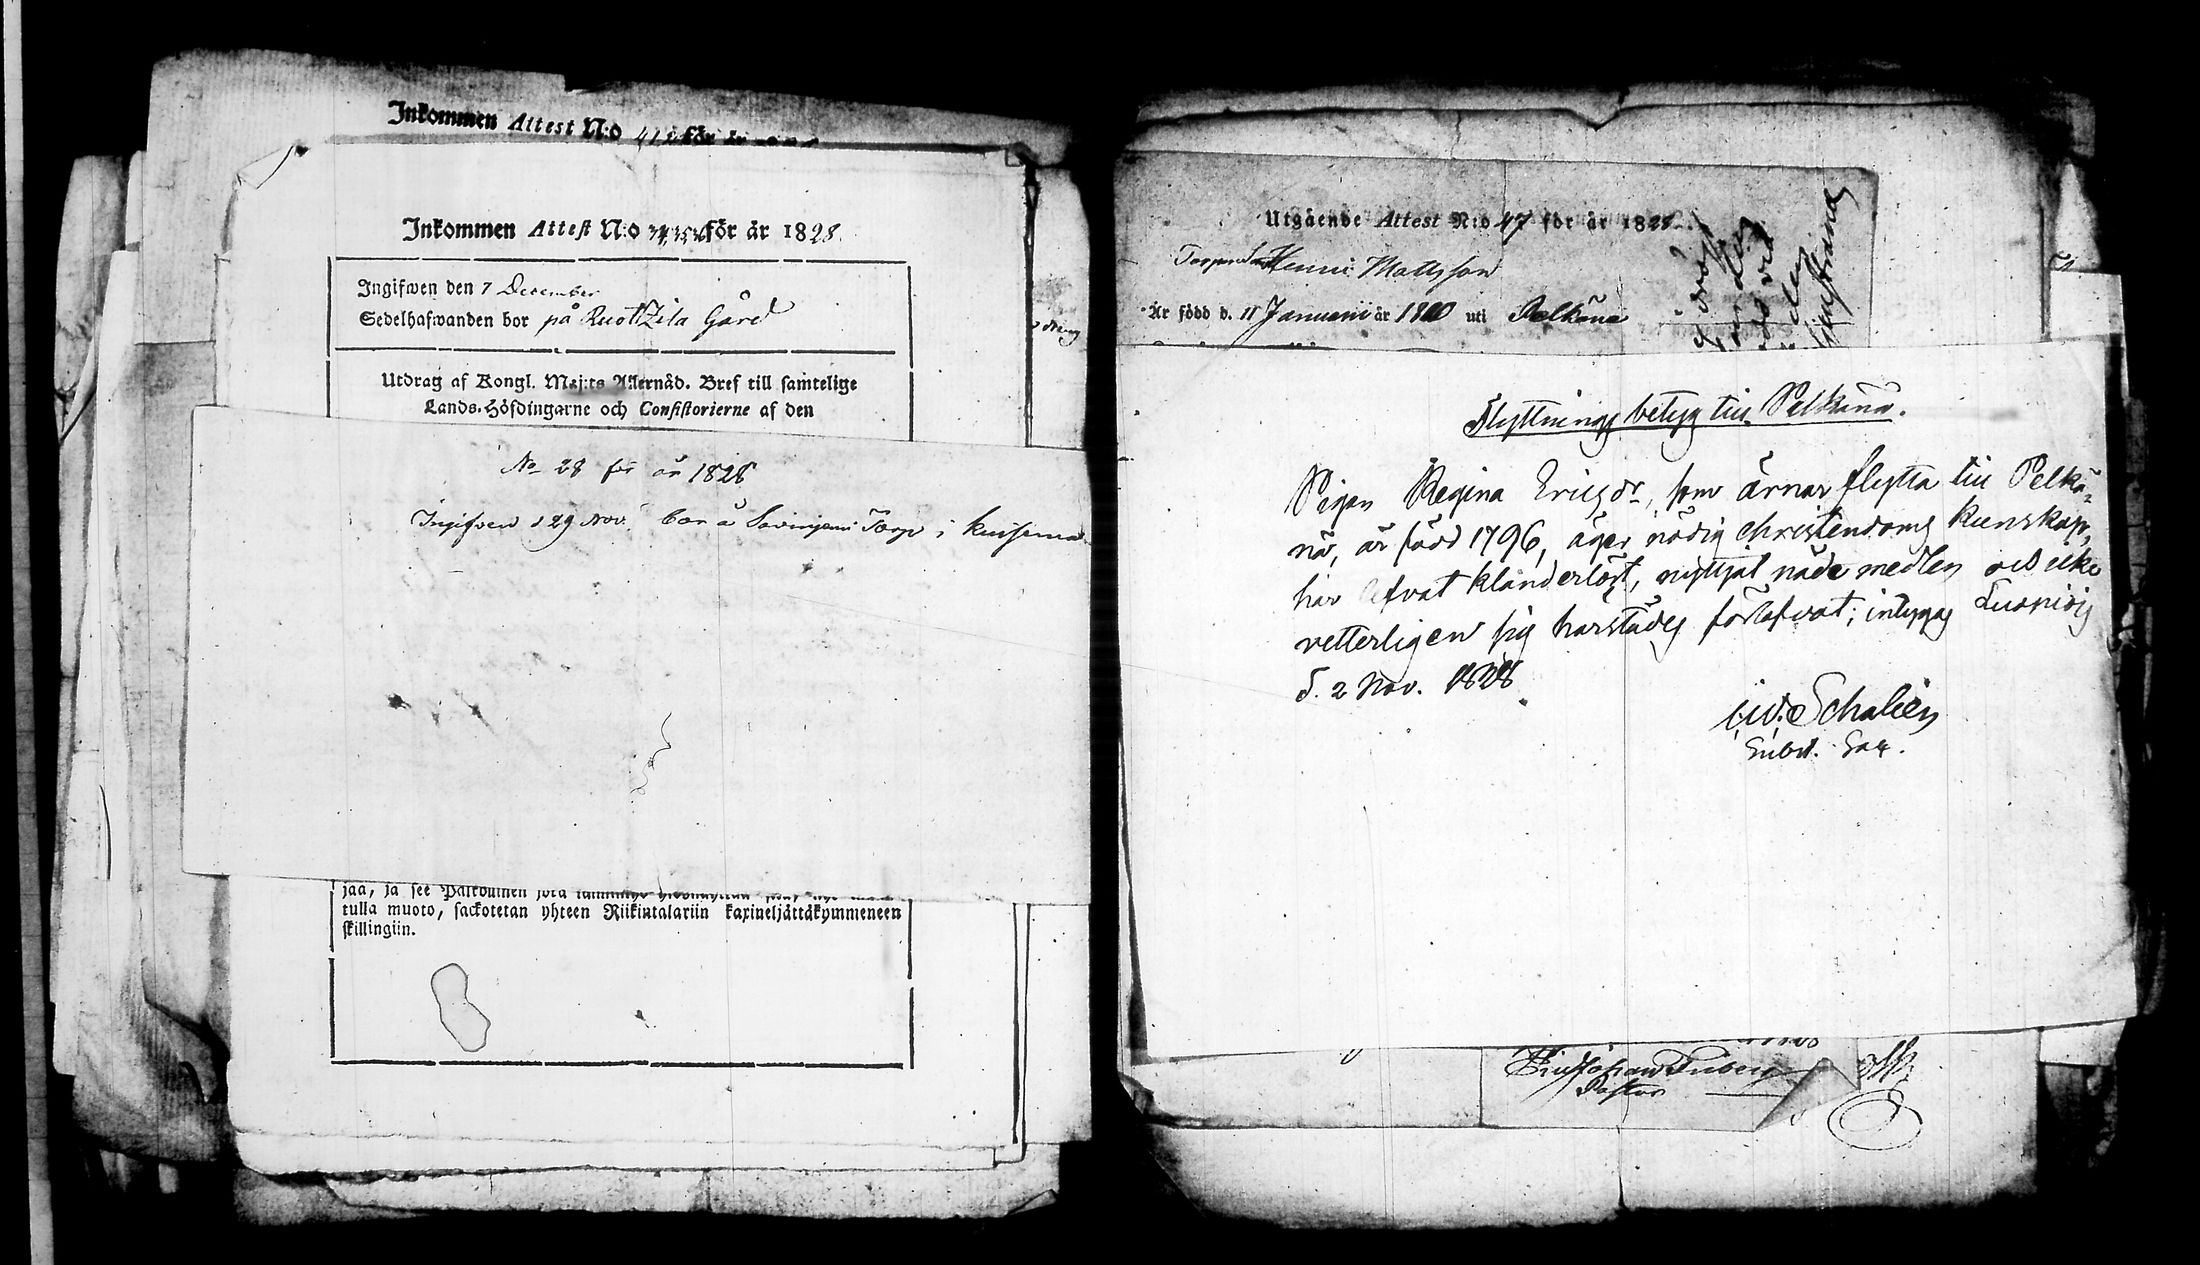 Inkommen Attest N:o för år
Inkommen Attest N:o för år 1828.
Ingifwen den 7 December
Sedelhafwanden bor på RuotZila Gård
Utdrag af Kongl. Maj:ts Allernåd. Bref till samtelige
Lands-Höfdingarne och Consistorierne af den
No 28 för år 1828
Ingifven d 29 Nov. bor å Torp i
jaa, ja see
tulla muoto, sackotetan yhteen Riikintalariin kaxineljättäkymmeneen
skillingiin.
Utgående Attest N:o 47 för år 1828.
Henric Mattsson
Är född d. 11 Januarii år 1800 uti Pelkäne
Flyttnings betyg till Pelkänä.
Pigan Regina Ericsdr, som ärnar flytta till Pelkä-
nä, är född 1796, äger nödig christendoms kunskap,
har lefvat klanderlöst, nyttjat nådemedlen och icke
vetterligen sig härstädes förlofvat; intygas
d. 2 Nov. 1828
Schalien
Subst. Sac.
Pastor